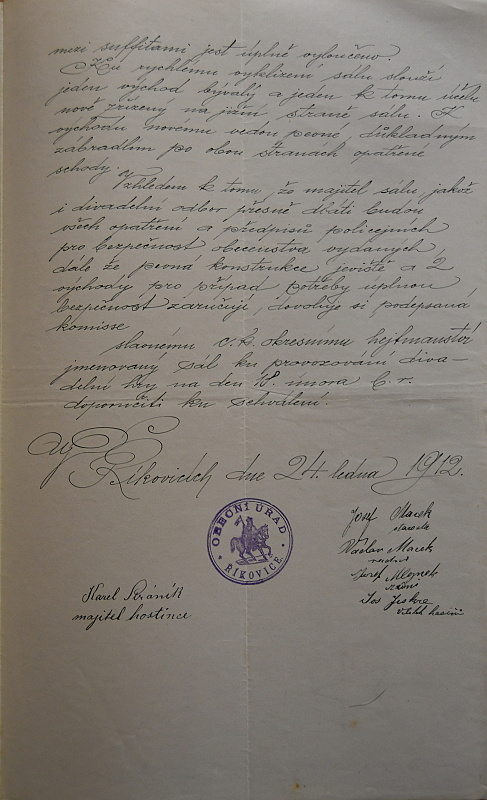 mezi suffitami jest úplně vyloučeno.
Ku rychlému vyklizení sálu slouží
jeden východ bývalý a jeden k tomu účelu
nově zřízený na jižní straně sálu. K
východu novému vedou pevné, důkladným
zábradlím po obou stranách opatřené
schody.
Vzhledem k tomu, že majitel sálu, jakož
i divadelní odbor přesně dbáti budou
všech opatření a předpisů policejních
pro bezpečnost obecenstva vydaných,
dále že pevná konstrukce jeviště a 2
východy pro případ potřeby úplnou
bezpečnost zaručují, dovoluje si podepsaná
komisse
slavnému c. k. okresnímu hejtmanství
jmenovaný sál ku provozování diva-
delní hry na den 18. února t. r.
doporučiti ku schválení.
V Říkovicích dne 24. ledna 1912.
OBECNÍ ÚŘAD
ŘÍKOVICE
Josef Marek
starosta
Václav Marek
radní
Josef Mlejnek
radní
Jos Jiskra
Karel
majitel hostince